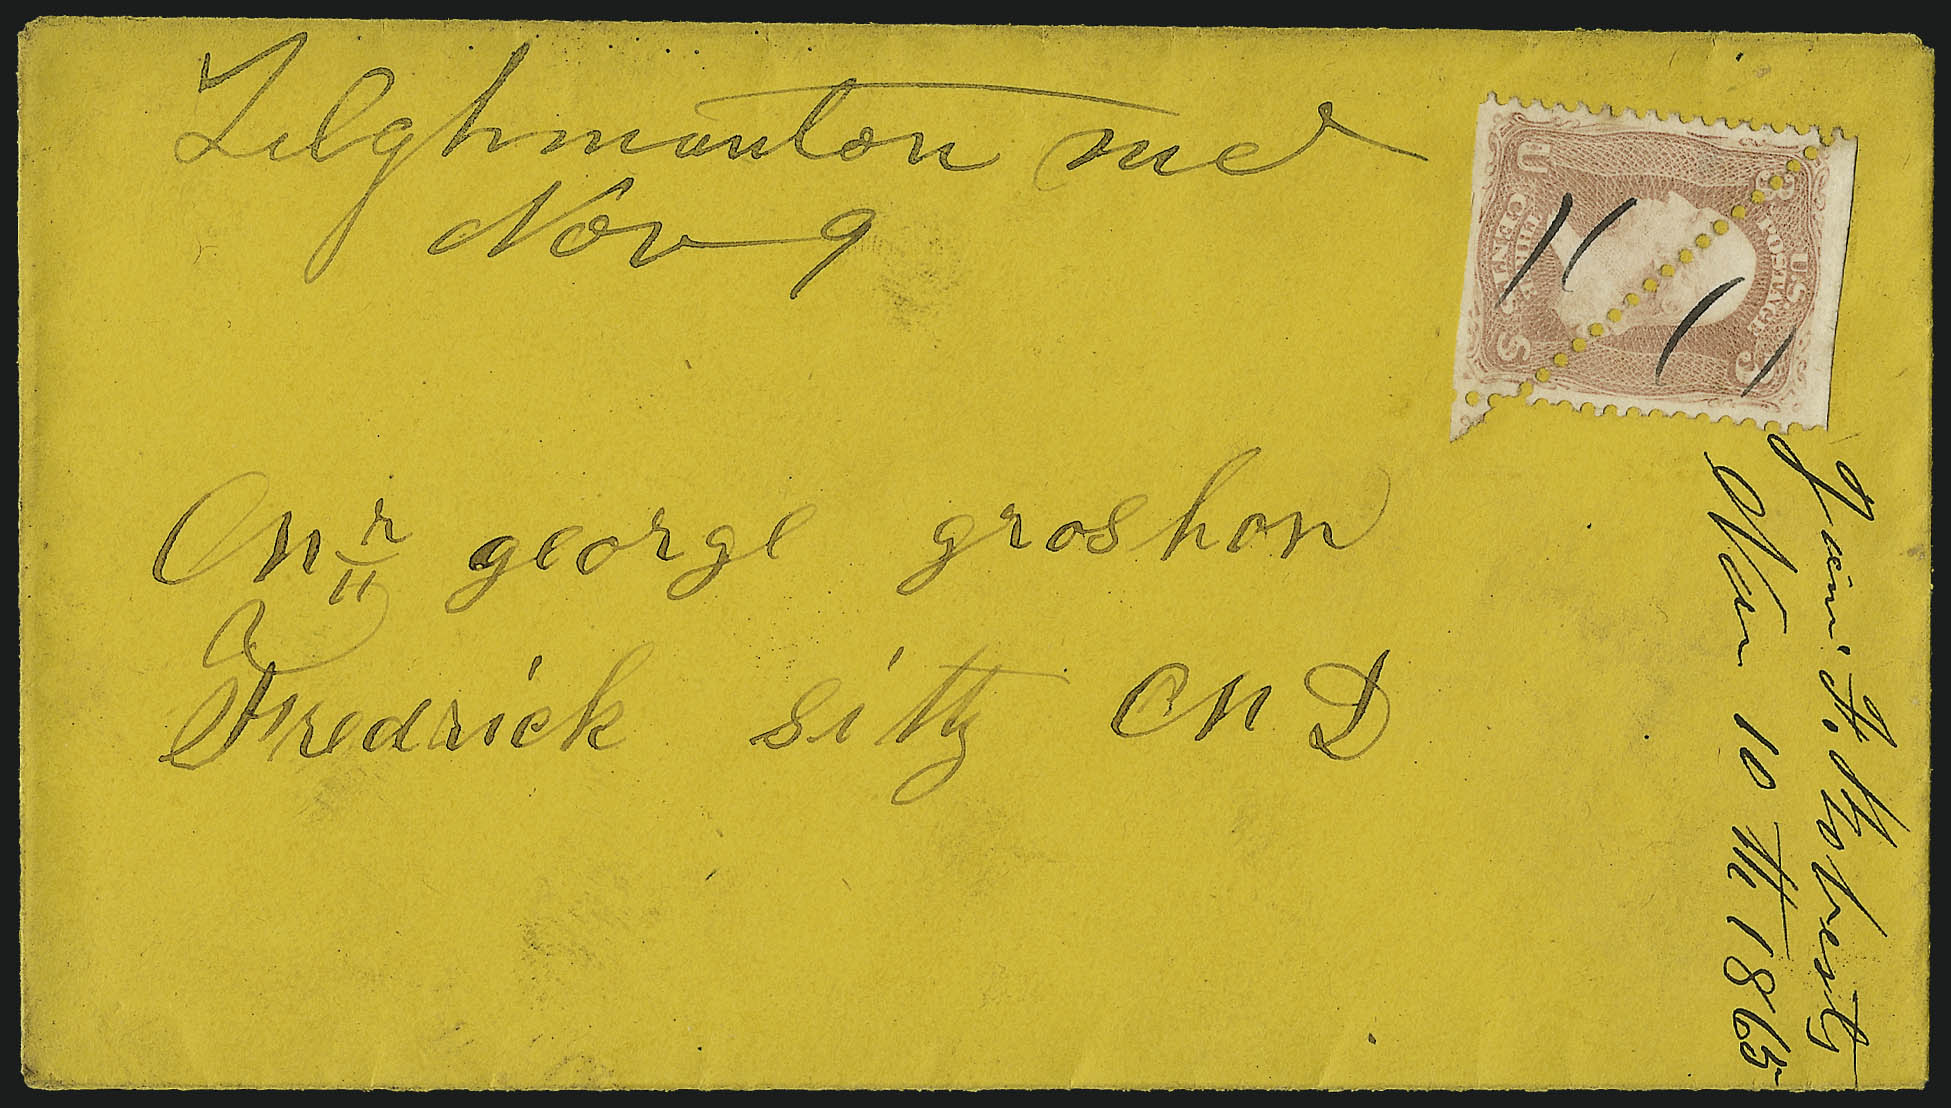 Tilghmanton md
Nov 9
Mr george groshon
Fredrick sitty MD
U.S. POSTAGE
3 3
THREE CENTS
U S
Nov 10th 1865